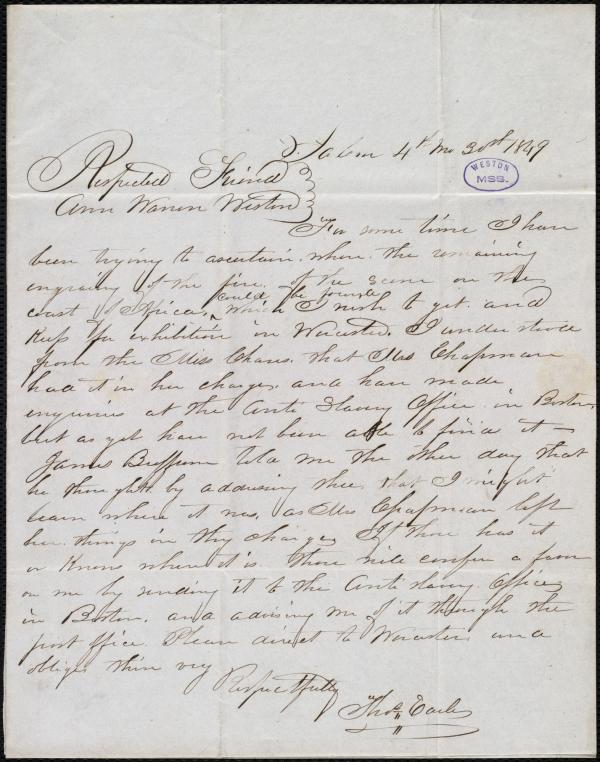 Salem 4th Mo 30st 1849
WESTON
MSS.
Respected Friend
Ann Warren Weston
For some time I have
been trying to ascertain where the remaining
engraving of the five, of the scene on the
could be found
coast of Africa, ^ which I wish to get and
Keep for exhibition in Worcester, I understood
from the Miss Chases, that Mrs Chapman
had it in her charge, and have made
enquiries at the Anti Slavery Office in Boston,
but as yet have not been able to find it —
James Buffum told me the other day that
he thought by addressing thee, that I might
learn where it was, as Mrs Chapman left
her things in thy charge, If thou has it
or Knows where it is. Thou will confer a favor
on me by sending it to the Anti slavery Office
in Boston, and advising me of it through the
post office. Please direct to Worcester, and
oblige thine very
Respectfully
Thos Earle